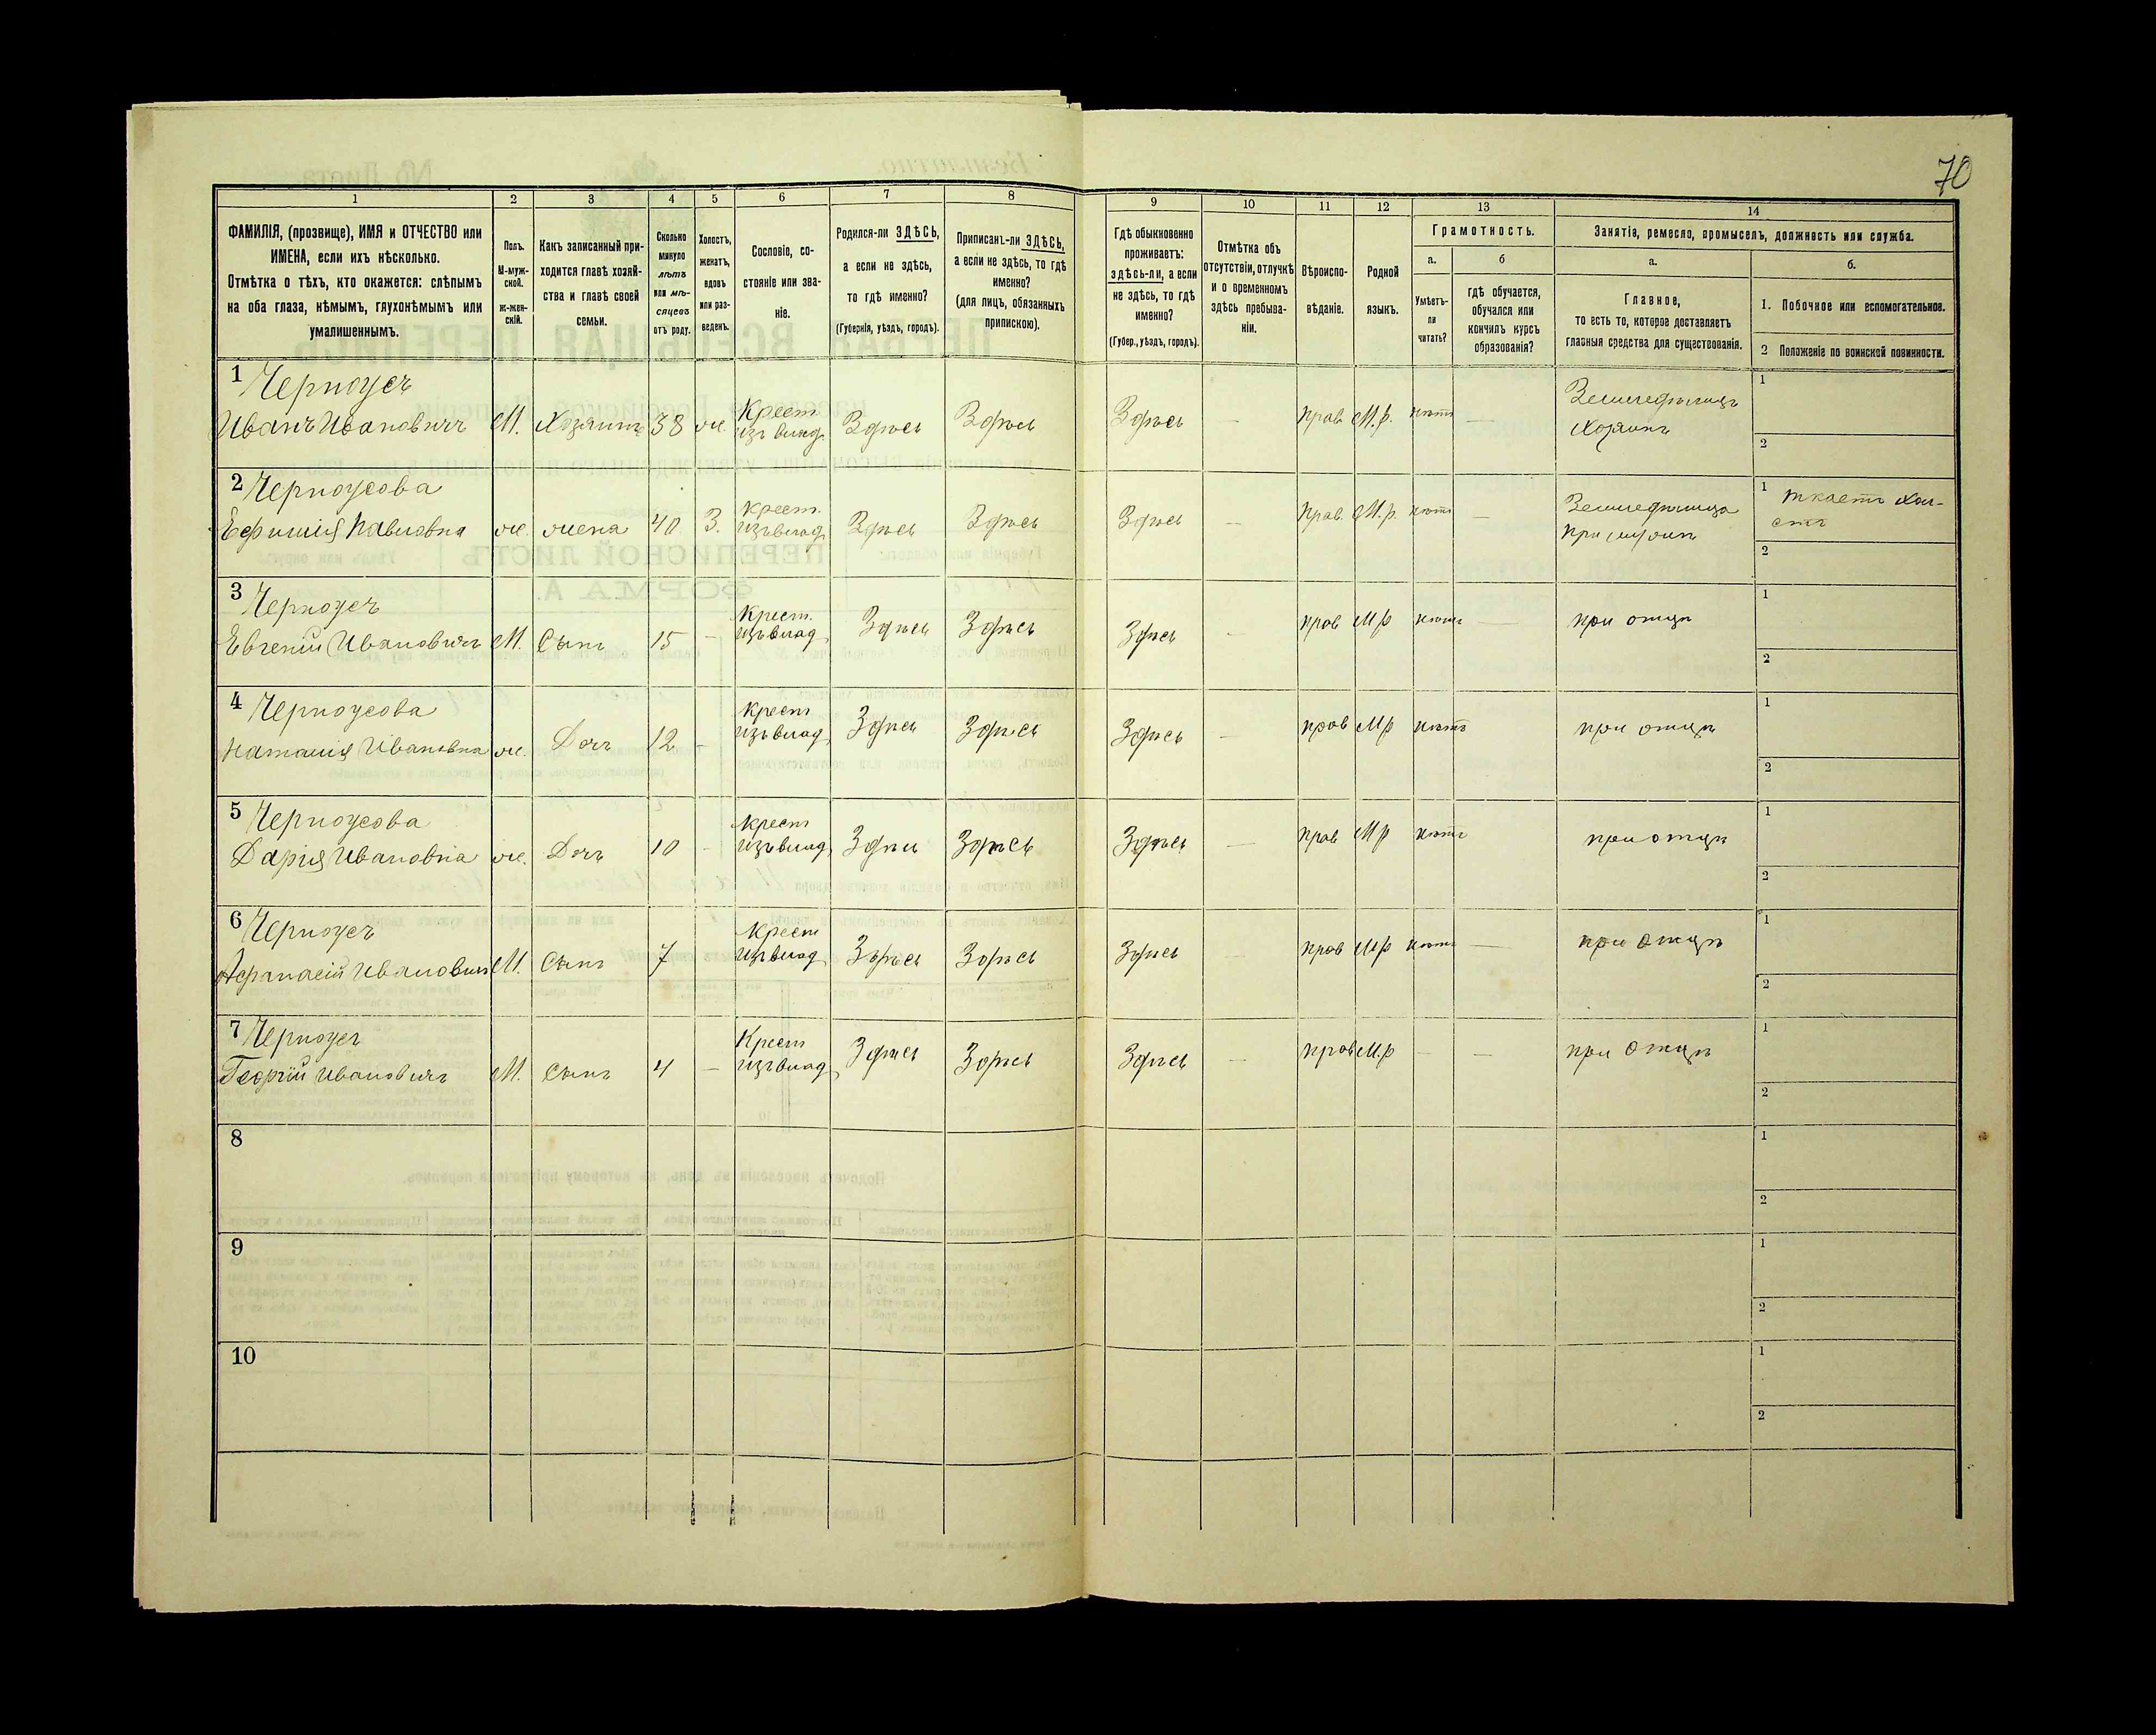 70
1 2 3 4 5 6 7 8 9 10 11 12 13 14
ФАМИЛІЯ, (прозвище), ИМЯ и ОТЧЕСТВО или
ИМЕНА, если ихъ нѣсколько.
Отмѣтка о тѣхъ, кто окажется: слѣпымъ
на оба глаза, нѣмымъ, глухонѣмымъ или
умалишеннымъ.
Полъ.
М-муж-
ской.
ж-жен-
скій.
Какъ записанный при-
ходится главѣ хозяй-
ства и главѣ своей
семьи.
Сколько
минуло
лѣтъ
или мѣ-
сяцевъ
отъ роду.
Холостъ,
женатъ,
вдовъ
или раз-
веденъ.
Сословіе, со-
стояніе или зва-
ніе.
Родился-ли ЗДѢСЬ,
а если не здѣсь,
то гдѣ именно?
(Губернія, уѣздъ, городъ).
Приписанъ-ли ЗДѢСЬ,
а если не здѣсь, то гдѣ
именно?
(для лицъ, обязанныхъ
припискою).
Гдѣ обыкновенно
проживаетъ:
здѣсь-ли, а если
не здѣсь, то гдѣ
именно?
(Губер., уѣздъ, городъ).
Отмѣтка объ
отсутствіи, отлучкѣ
и о временномъ
здѣсь пребыва-
ніи.
Вѣроиспо-
вѣданіе.
Родной
языкъ.
Грамотность.
а.
Умѣетъ-
ли
читать?
б
гдѣ обучается,
обучался или
кончилъ курсъ
образованія?
Занятіе, ремесло, промыселъ, должность или служба.
а.
Главное,
то есть то, которое доставляетъ
главныя средства для существованія.
б.
1. Побочное или вспомогательное.
2 Положеніе по воинской повинности.
1 Черноусъ
Иванъ Ивановичъ М. Хозяинъ 38 ж. Крест. изъ влад. Здѣсь Здѣсь Здѣсь — прав. М.р. нѣтъ — Земледѣлецъ Хозяинъ 1 2
2 Черноусова
Ефимія Павловна ж. жена 40 З. Крест. изъ влад. Здѣсь Здѣсь Здѣсь — Прав. М.р. нѣтъ — Земледѣлица 1 ткаетъ хол-
стъ 2
3 Черноусъ
Евгеній Ивановичъ М. Сынъ 15 — Крест. изъ влад. Здѣсь Здѣсь Здѣсь — прав М р нѣтъ — при отцѣ 1 2
4 Черноусова
Наталія Ивановна ж. Дочъ 12 — Крест изъ влад. Здѣсь Здѣсь Здѣсь — прав М р нѣтъ — при отцѣ 1 2
5 Черноусова
Дарія Ивановна ж. Дочъ 10 — Крест изъ влад. Здѣсь Здѣсь Здѣсь — прав М р нѣтъ — при отцѣ 1 2
6 Черноусъ
Афанасій Ивановичъ М. Сынъ 7 Крест изъ влад. Здѣсь Здѣсь Здѣсь — прав М р нѣтъ — при отцѣ 1 2
7 Черноусъ
Георгій Ивановичъ М. Сынъ 4 — Крест изъ влад. Здѣсь Здѣсь Здѣсь — прав М.р — — при отцѣ 1 2
8 1 2
9 1 2
10 1 2